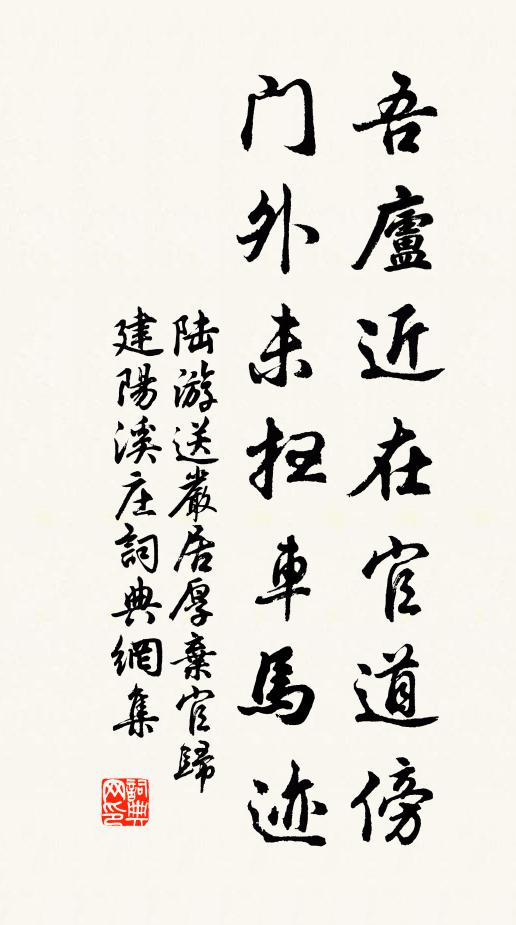 吾廬近在官道傍
门外未扭車馬迹
陆游送嚴居厚棄官歸
建陽溪庄詞典網集
詞典网印